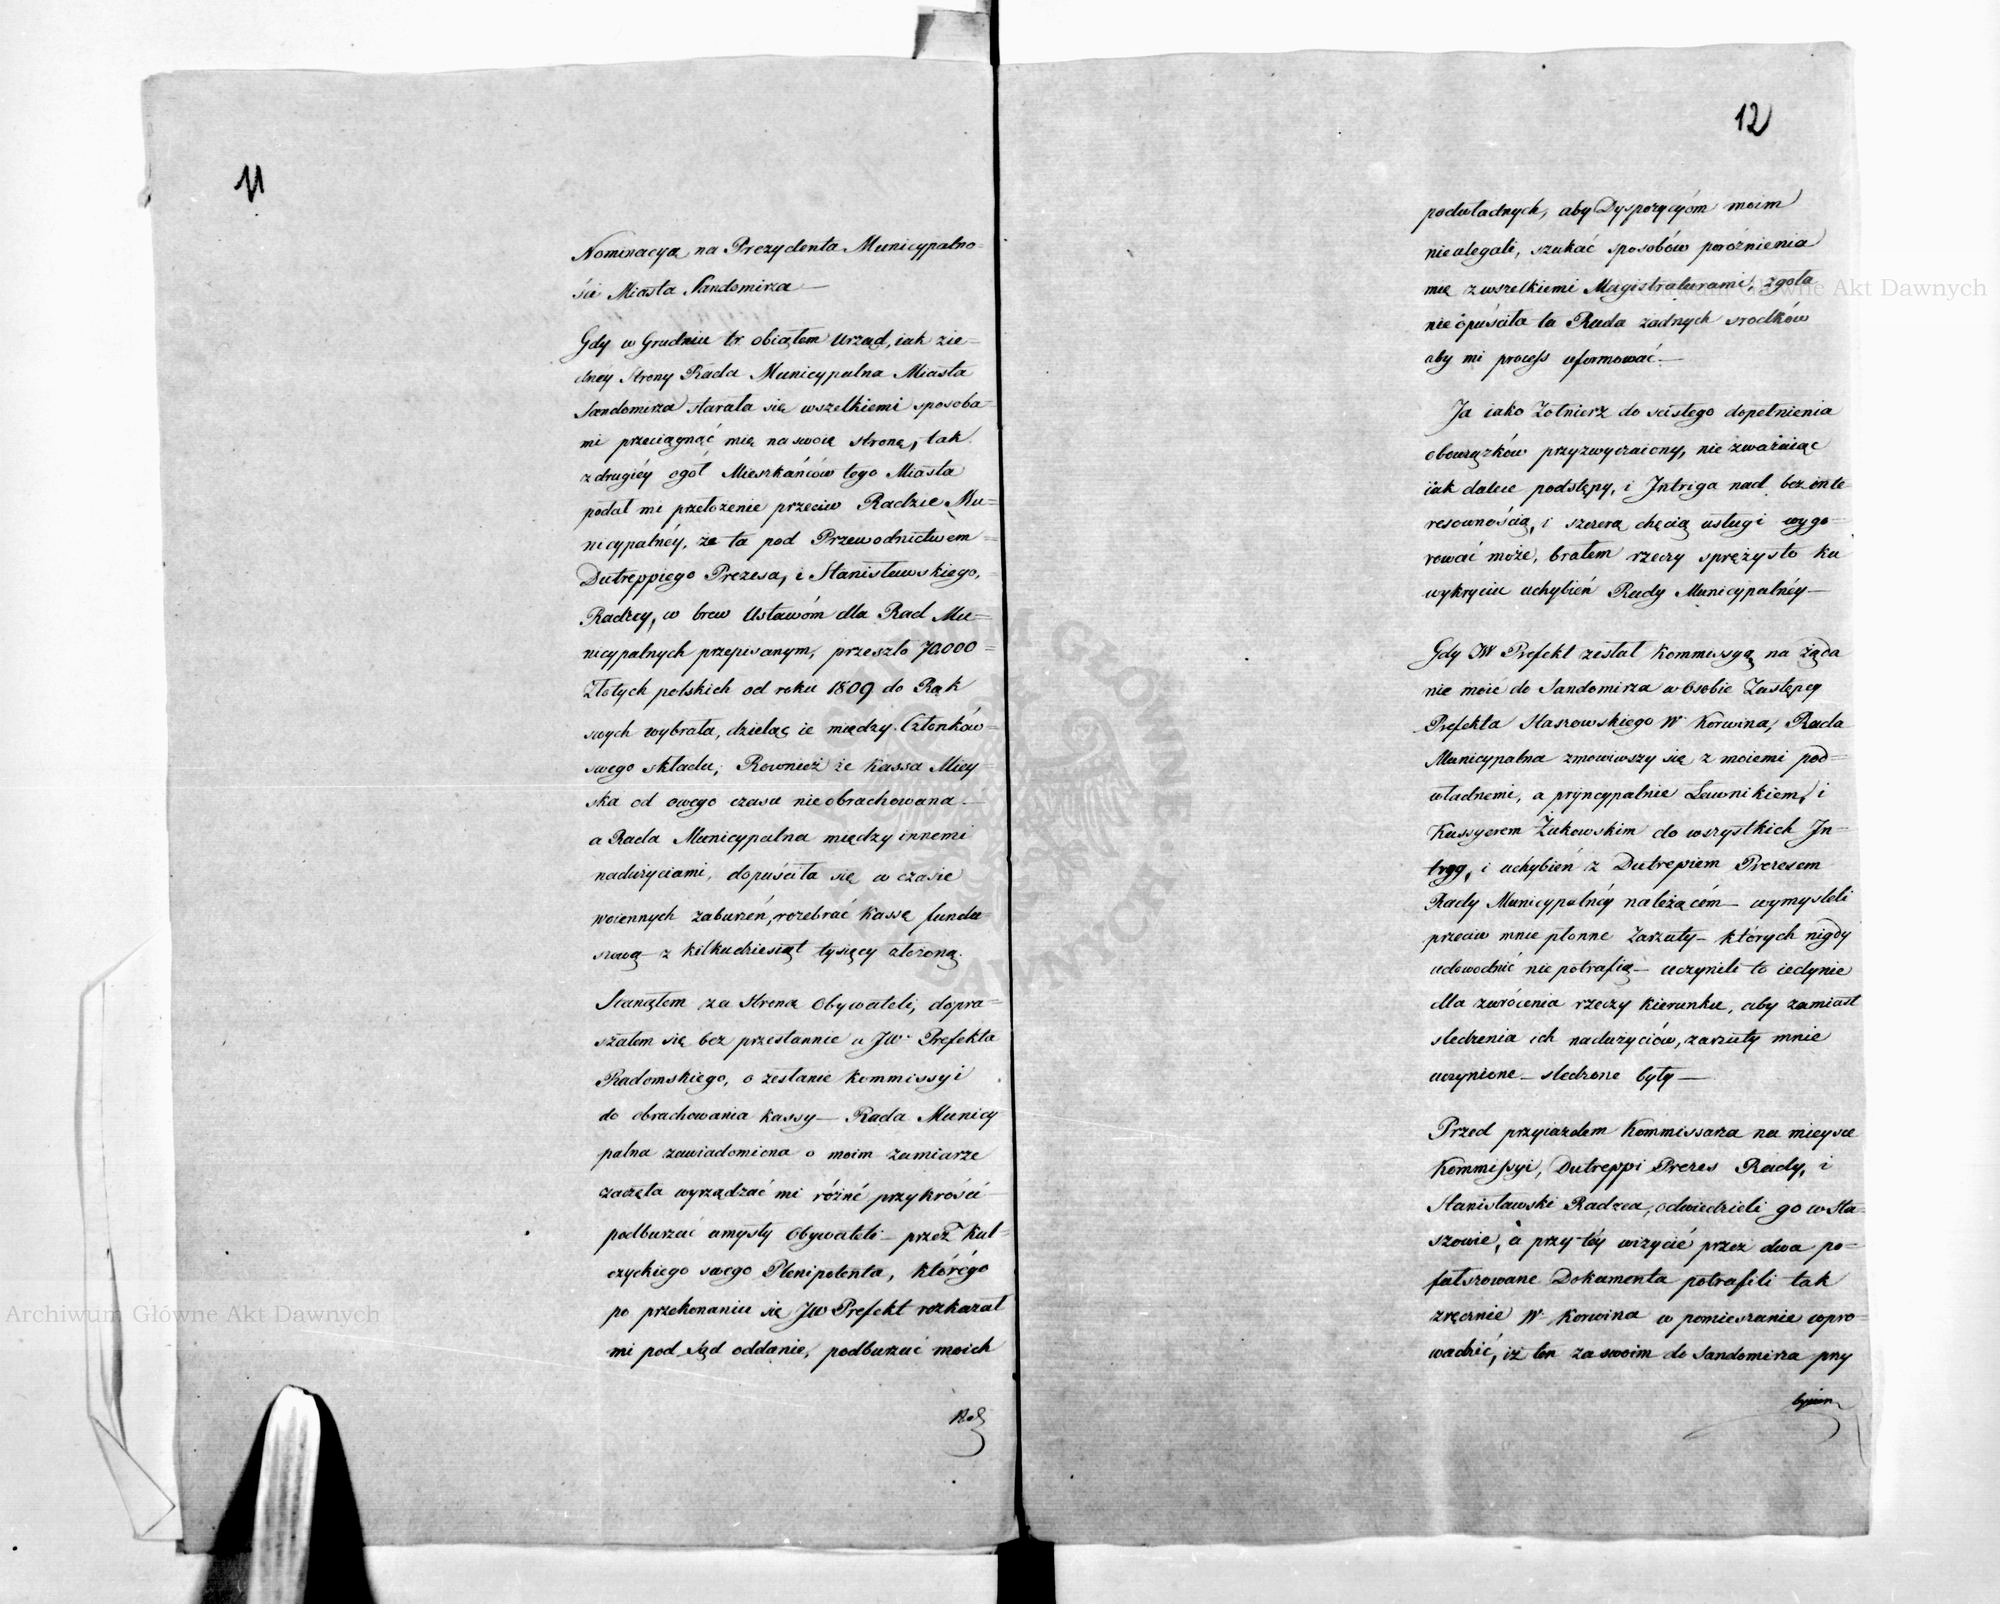 11
Nominacyą na Prezydenta Municypalno-
ści Miasta Sandomirza —
Gdy w Grudniu tr obiąłem Urząd, iak zie-
dney Strony Rada Municypalna Miasta
Sandomirza starała się wszelkiemi sposoba-
mi przeciągnąć mię na swoię stronę, tak
z drugiéy ogół Mieszkańców tego Miasta
podał mi przełożenie przeciw Radzie Mu-
nicypalnéy, że ta pod Przewodnictwem
Dutreppiego Prezesa, i Stanisławskiego,
Radzcy, w brew Ustawóm dla Rad Mu-
nicypalnych przepisanym, przeszło 70.000
Złotych polskich od roku 1809 do Rąk
swych wybrała, dzieląc ie między Członków
swego składu; Rownież że kassa Miey-
ska od owego czasu nieobrachowana —
a Rada Municypalna między innemi
nadużyciami, dopuściła się w czasie
woiennych zaburzeń, rozebrać kassę fundu
szową — z kilkudziesiąt tysięcy złożoną.
Stanąłem za stroną Obywateli, dopra-
szałem się bez przestannie u JW. Prefekta
Radomskiego, o zesłanie kommissyi
do obrachowania kassy — Rada Municy
palna zawiadomiona o moim zamiarze
zaczęła wyrządzać mi różné przykrości
podburzać umysły Obywateli — przez Kul-
czyckiego swego Plenipotenta, którégo
po przekonaniu się JW Prefekt rozkazał
mi pod Sąd oddanie, podburzać moich
12
podwładnych, aby Dyspozycyóm moim
nieulegali, szukać sposobów poróżnienia
mię z wszelkiemi Magistraturami, zgoła
nie opuściła ta Rada żadnych srodków
aby mi process uformować. —
Ja iako Żołnierz do scisłego dopełnienia
obowiązków przyzwyczaiony, nie zważaiąc
iak dalece podstępy, i Intriga nad bezinte
resownością, i szczerą chęcią usługi wygó-
rować może, brałem rzeczy sprężysto ku
wykryciu uchybień Rady Municypalnéy —
Gdy JW Prefekt zesłał kommissyą na żąda
nie moie do Sandomirza w Osobie Zastępcy
Prefekta Staszowskiego W. Korwina, Rada
Municypalna zmowiwszy się z moiemi pod-
władnemi, a pryncypalnie Ławnikiem, i
Kassyerem Żukowskim do wszystkich In-
tryg, i uchybień z Dutrepiem Prezesem
Rady Municypalnéy należącém — wymysleli
przeciw mnie płonne Zarzuty — których nigdy
udowodnić nie potrafią — uczynili to iedynie
dla zwrócenia rzeczy kierunku, aby zamiast
sledzenia ich nadużyciów, zarzuty mnie
uczynione — sledzone były —
Przed przyiazdem Kommissarza na mieysce
Kommissyi, Dutreppi Prezes Rady, i
Stanisławski Radzca, odwiedzieli go w Sta-
szowie, a przy téy wizycie przez dwa po-
fałszowane Dokumenta potrafili tak
zręcznie W. Korwina w pomieszanie wpro-
wadzić, iż ten za swoim do Sandomirza przy
byciem
Archiwum Główne Akt Dawnych